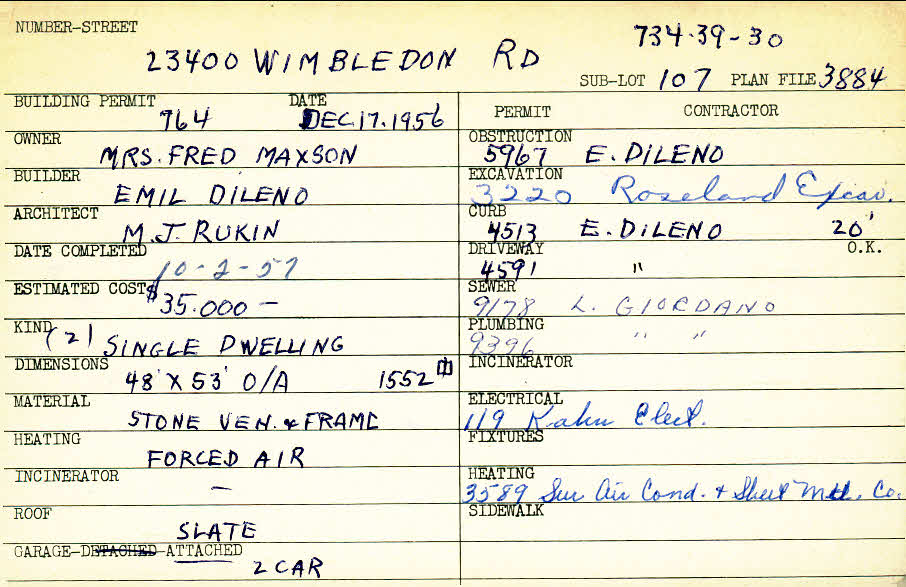 NUMBER-STREET
23400 WIMBLEDON RD
734-39-30
SUB-LOT 107 PLAN FILE 3884
BUILDING PERMIT 764 DATE DEC.17.1956
OWNER
MRS. FRED MAXSON
BUILDER
EMIL DILENO
ARCHITECT
M.J. RUKIN
DATE COMPLETED
10-2-57
ESTIMATED COST $35.000 —
KIND (2) SINGLE DWELLING
DIMENSIONS
48' X 53' O/A 1552
MATERIAL
STONE VEN. & FRAME
HEATING
FORCED AIR
INCINERATOR
—
ROOF
SLATE
GARAGE-DETACHED-ATTACHED
2 CAR
PERMIT CONTRACTOR
OBSTRUCTION
5967 E. DILENO
EXCAVATION
3220 Roseland Excav.
CURB
4513 E. DILENO 20'
DRIVEWAY O.K.
4591 "
SEWER
9178 L. GIORDANO
PLUMBING
9396 " "
INCINERATOR
ELECTRICAL
119 Kahn Elect.
FIXTURES
HEATING
3589 Sur Air Cond. & Sheet Mtl. Co.
SIDEWALK